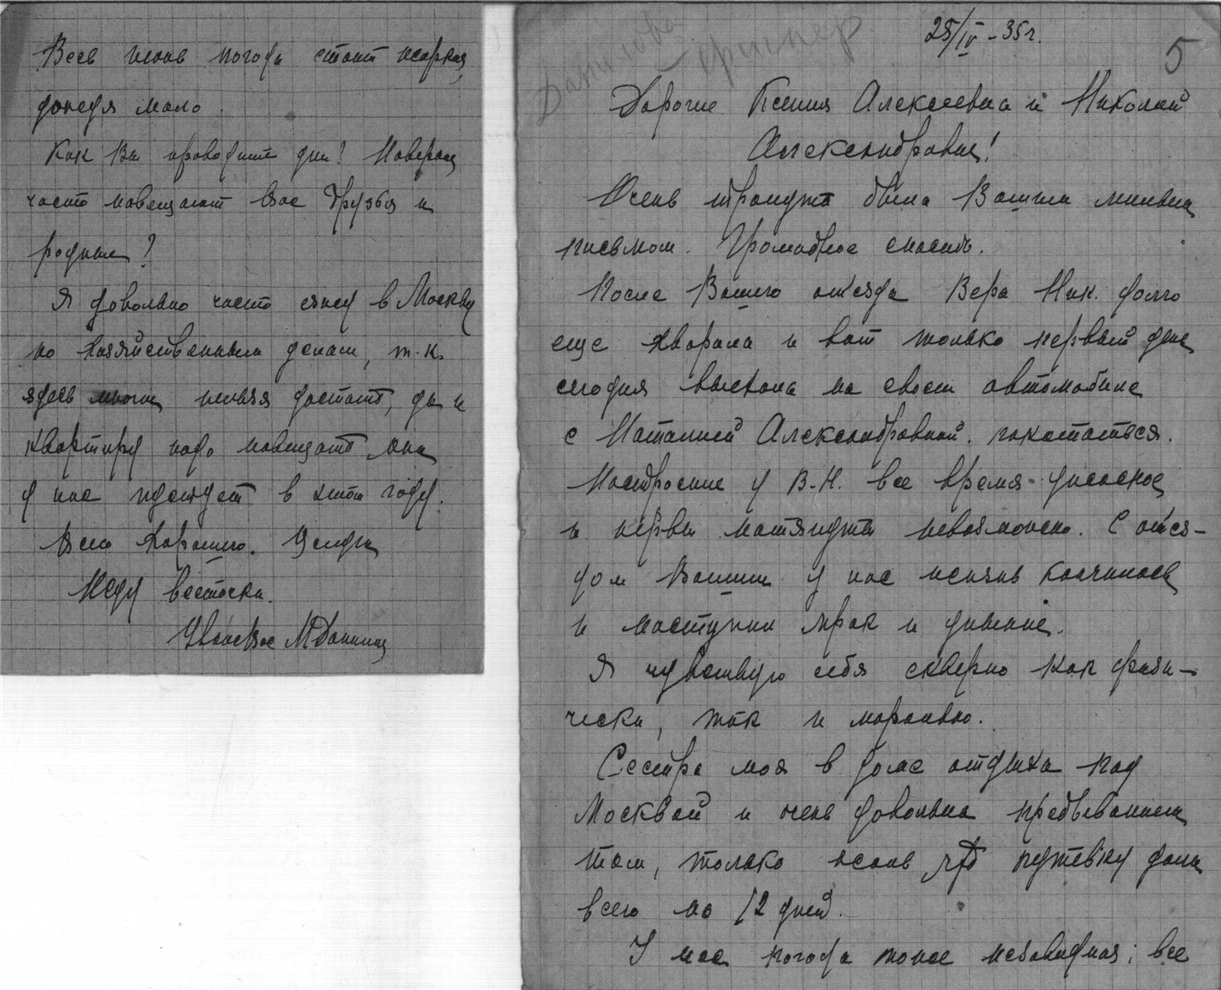 28/IV-35 г.
5
Дорогие Ксения Алексеевна и Николай
Александрович!
Очень тронута была Вашим милым
письмом. Громадное спасибо.
После Вашего отъезда Вера Ник. долго
еще хворала и вот только первый день
сегодня выехала на своем автомобиле
с Наталией Александровной покататься.
Настроение у В.Н. все время ужасное
и нервы натянуты невозможно. С отъез-
дом Вашим у нас жизнь кончилась
и наступил мрак и уныние.
Я чувствую себя скверно как физи-
чески, так и морально.
Сестра моя в доме отдыха под
Москвой и очень довольна пребыванием
там, только жаль что путевку дали
всего на 12 дней.
У нас погода тоже незавидная; все
Весь июнь погода стоит жаркая,
дождя мало.
Как Вы проводите дни? Наверно
часто навещают Вас друзья и
родные?
Я довольно часто езжу в Москву
по хозяйственным делам, т.к.
здесь многое нельзя достать, да и
квартиру надо навещать, она
у нас пустует в этом году.
Всего хорошего. Целую
Жду весточки.
Уваж. Вас